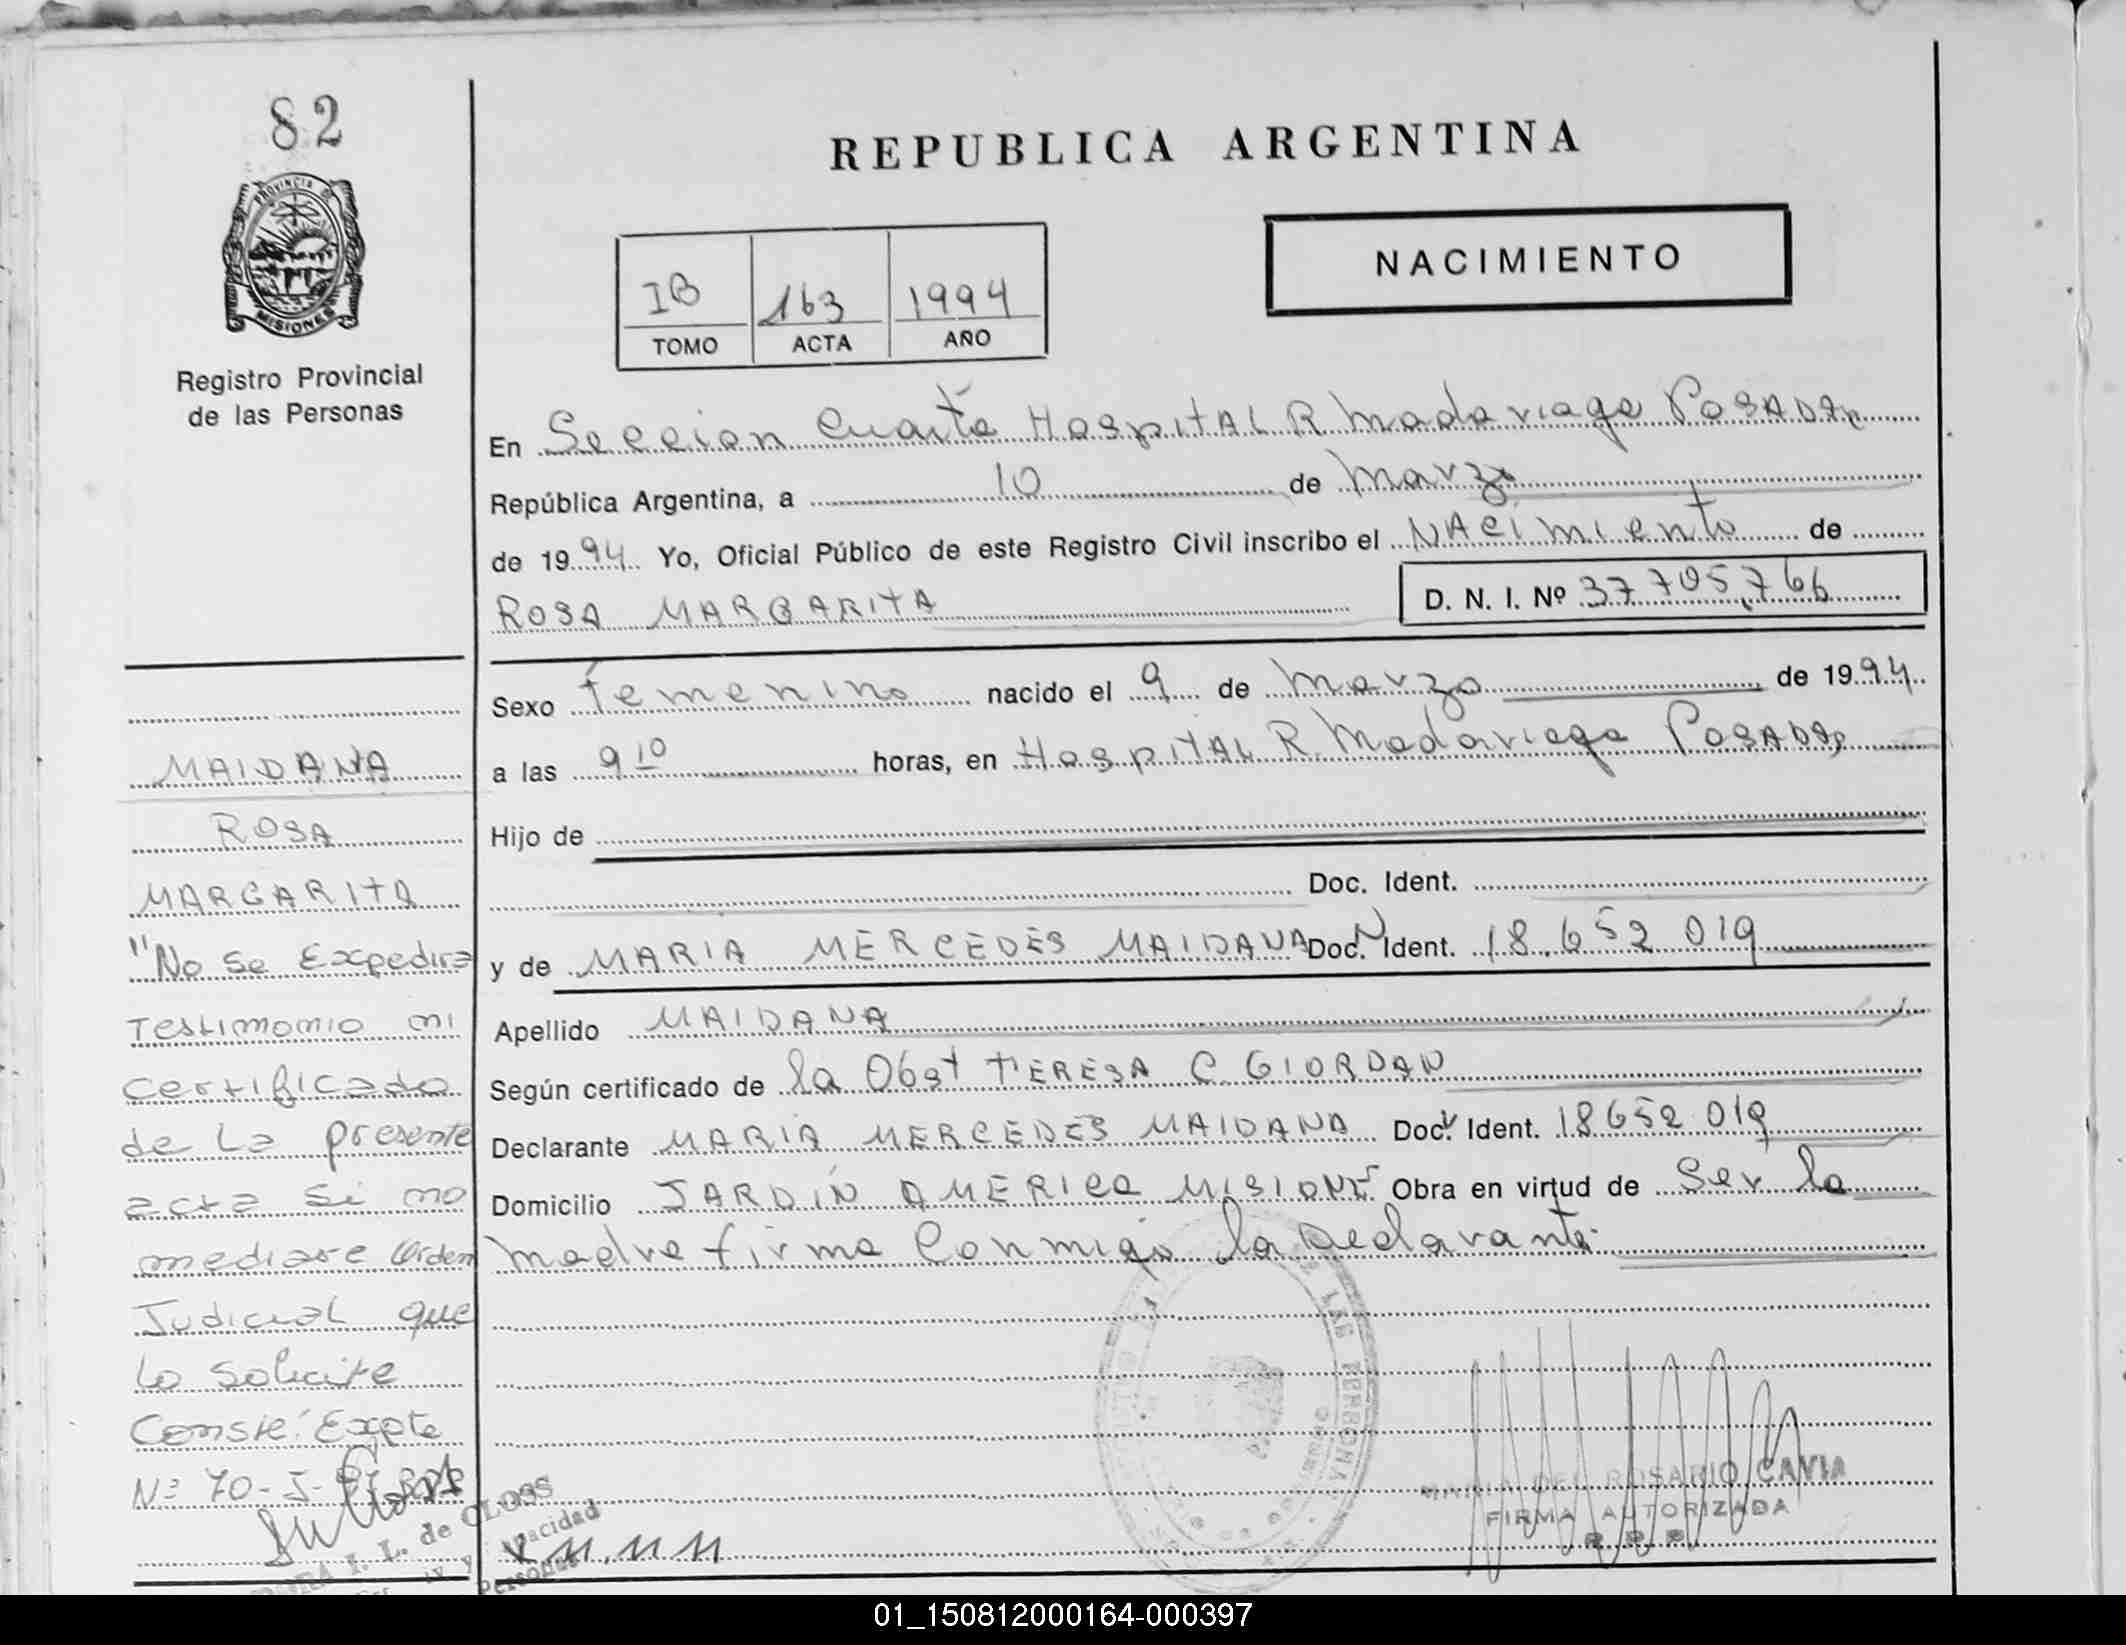 82
PROVINCIA DE
MISIONES
Registro Provincial
de las Personas
REPUBLICA ARGENTINA
NACIMIENTO
IB 163 1994
TOMO ACTA AÑO
En Seccion Cuarta Hospital R Madariaga Posadas
República Argentina, a 10 de Marzo
de 1994 Yo, Oficial Público de este Registro Civil inscribo el Nacimiento de
ROSA MARGARITA D. N. I. Nº 37.705.766
Sexo femenino nacido el 9 de Marzo de 1994
a las 9 10 horas, en Hospital R. Madariaga Posadas
Hijo de
Doc. Ident.
y de MARIA MERCEDES MAIDANA Doc. Ident. 18.652 019
Apellido MAIDANA
Según certificado de la Obst TERESA C GIORDAN
Declarante MARIA MERCEDES MAIDANA Doc. Ident. 18652 019
Domicilio JARDIN AMERICA MISIONES Obra en virtud de Ser la
madre firma Conmigo la declarante
MAIDANA
ROSA
MARGARITA
"No se Expedira
Testimonio ni
certificado
de La presente
acta si no
mediare Orden
Judicial que
Lo solicite
Conste: Expte
Nº 70-J-
I. L. de CLOSS
M.M.M
LAS PERSONAS
MARIA DEL ROSARIO CAVIA
FIRMA AUTORIZADA
01_150812000164-000397